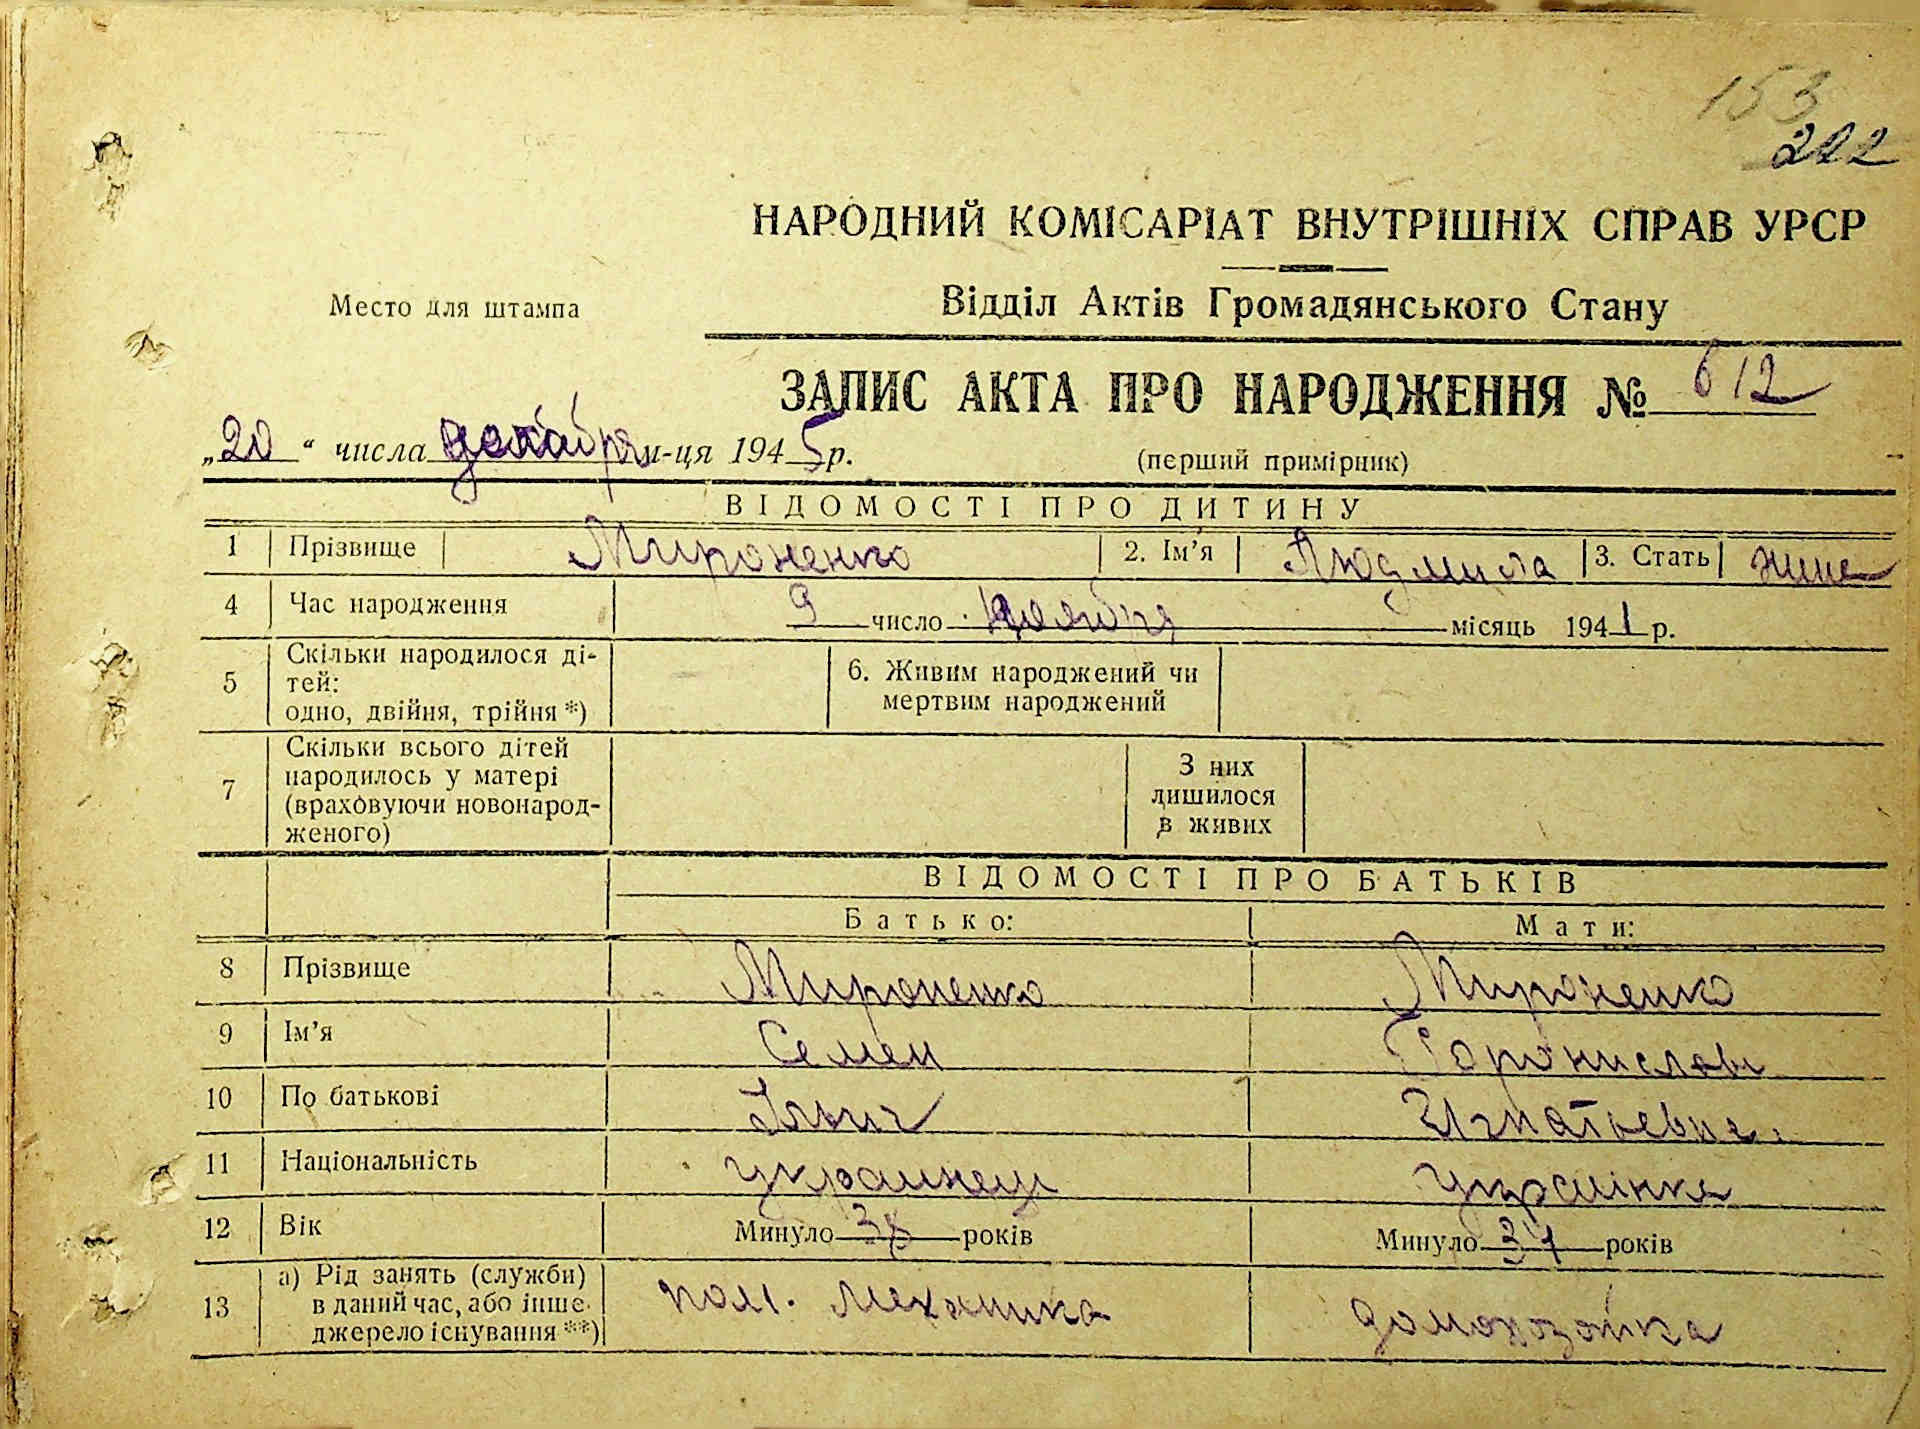 153
222
НАРОДНИЙ КОМІСАРІАТ ВНУТРІШНІХ СПРАВ УРСР
Место для штампа
Відділ Актів Громадянського Стану
ЗАПИС АКТА ПРО НАРОДЖЕННЯ № 612
„20“ числа декабря м-ця 1945 р.
(перший примірник)
ВІДОМОСТІ ПРО ДИТИНУ
1 Прізвище Мироненко 2. Ім'я Людмила 3. Стать жине
4 Час народження 9 число ноября місяць 1941 р.
5 Скільки народилося ді-
тей:
одно, двійня, трійня *)
6. Живим народжений чи
мертвим народжений
7 Скільки всього дітей
народилось у матері
(враховуючи новонарод-
женого)
З них
лишилося
в живих
ВІДОМОСТІ ПРО БАТЬКІВ
Батько: Мати:
8 Прізвище Мироненко Мироненко
9 Ім'я Семен
10 По батькові Ільич Игнатьевна
11 Національність украинец українка
12 Вік Минуло років Минуло років
13 а) Рід занять (служби)
в даний час, або інше
джерело існування **)
пом. механика домохозяйка